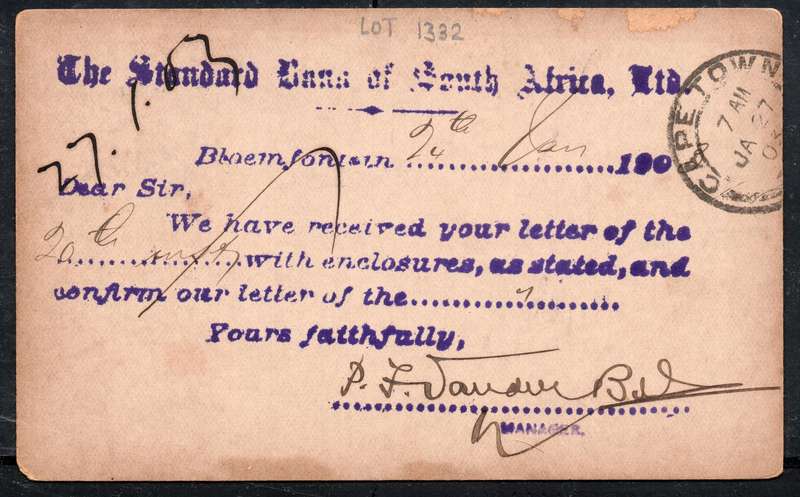 LOT 1332
The Standard Bank of South Africa, Ltd.
27.1.03
CAPE TOWN
7 AM
JA 27
03
Bloemfontein 24th Jan 190
Dear Sir,
We have received your letter of the
20th inst with enclosures, as stated, and
confirm our letter of the
Yours faithfully,
P. J. Van der Byl
MANAGER.